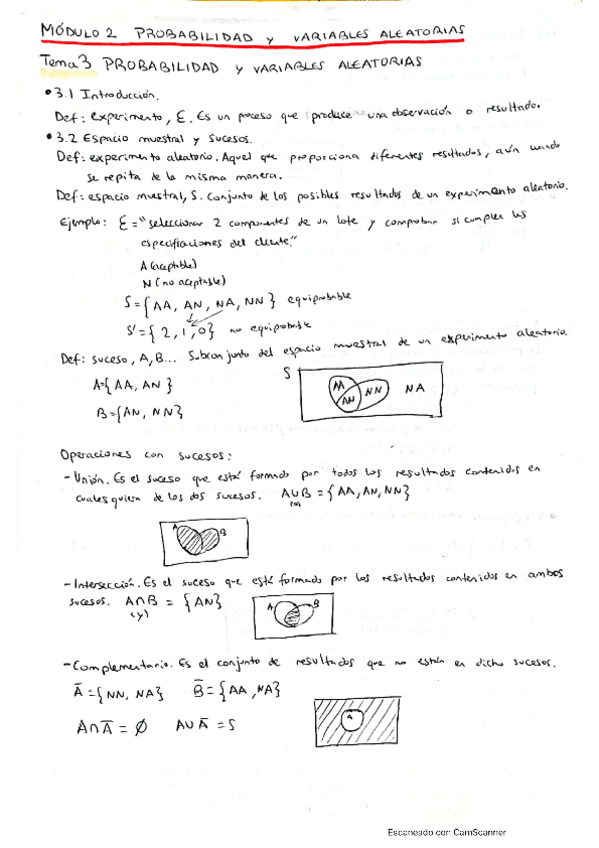 MÓDULO 2 PROBABILIDAD y VARIABLES ALEATORIAS
Tema 3 PROBABILIDAD y VARIABLES ALEATORIAS
• 3.1 Introducción.
Def: experimento, Ɛ. Es un proceso que produce una observación o resultado.
• 3.2 Espacio muestral y sucesos.
Def: experimento aleatorio. Aquel que proporciona diferentes resultados, aún cuando
se repita de la misma manera.
Def: espacio muestral, S. Conjunto de los posibles resultados de un experimento aleatorio.
Ejemplo: Ɛ = "seleccionar 2 componentes de un lote y comprobar si cumplen las
especificaciones del cliente."
A (aceptable)
N (no aceptable)
S = {AA, AN, NA, NN} equiprobable
S' = {2, 1, 0} no equiprobable
Def: suceso, A, B... Subconjunto del espacio muestral de un experimento aleatorio.
A={AA, AN}
B={AN, NN}
S
AA
AN
NN
NA
Operaciones con sucesos:
- Unión. Es el suceso que está formado por todos los resultados contenidos en
cualesquiera de los dos sucesos. A∪B = {AA, AN, NN}
(o)
A
B
- Intersección. Es el suceso que está formado por los resultados contenidos en ambos
sucesos. A∩B = {AN}
(y)
A
B
- Complementario. Es el conjunto de resultados que no están en dicho sucesos.
A̅ = {NN, NA} B̅ = {AA, NA}
A∩A̅ = Ø A∪A̅ = S
A
Escaneado con CamScanner